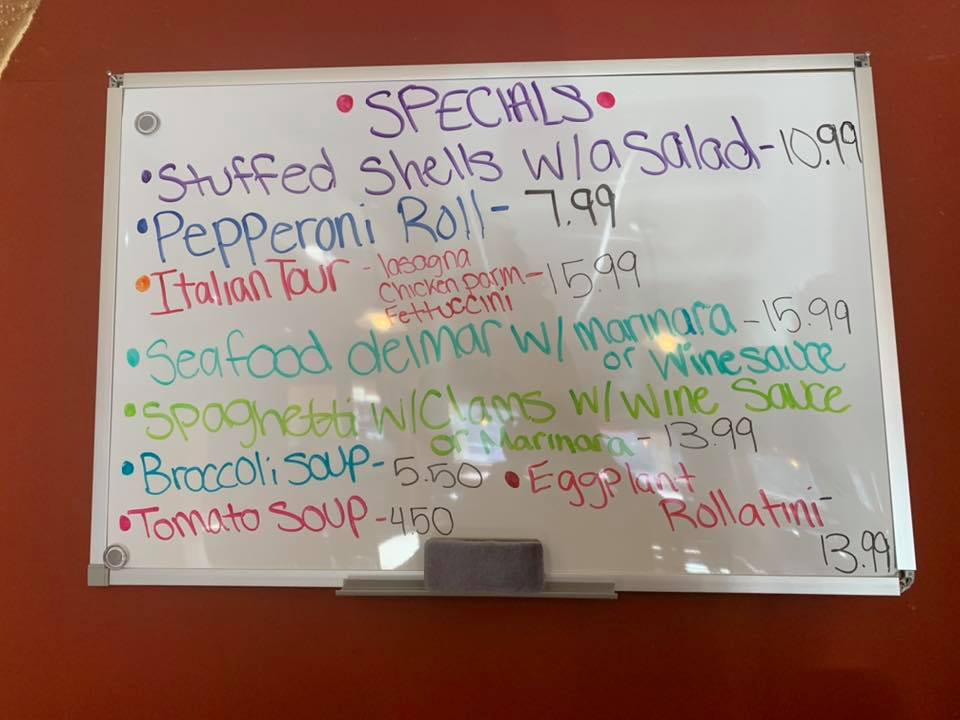 • SPECIALS •
• Stuffed Shells w/a Salad - 10.99
• Pepperoni Roll - 7.99
• Italian Tour - lasagna
Chicken parm - 15.99
Fettuccini
• Seafood delmar w/ marinara - 15.99
or Wine sauce
• Spaghetti w/Clams w/ Wine Sauce
or Marinara - 13.99
• Broccoli Soup - 5.50
• Eggplant
Rollatini -
13.99
• Tomato Soup - 4.50